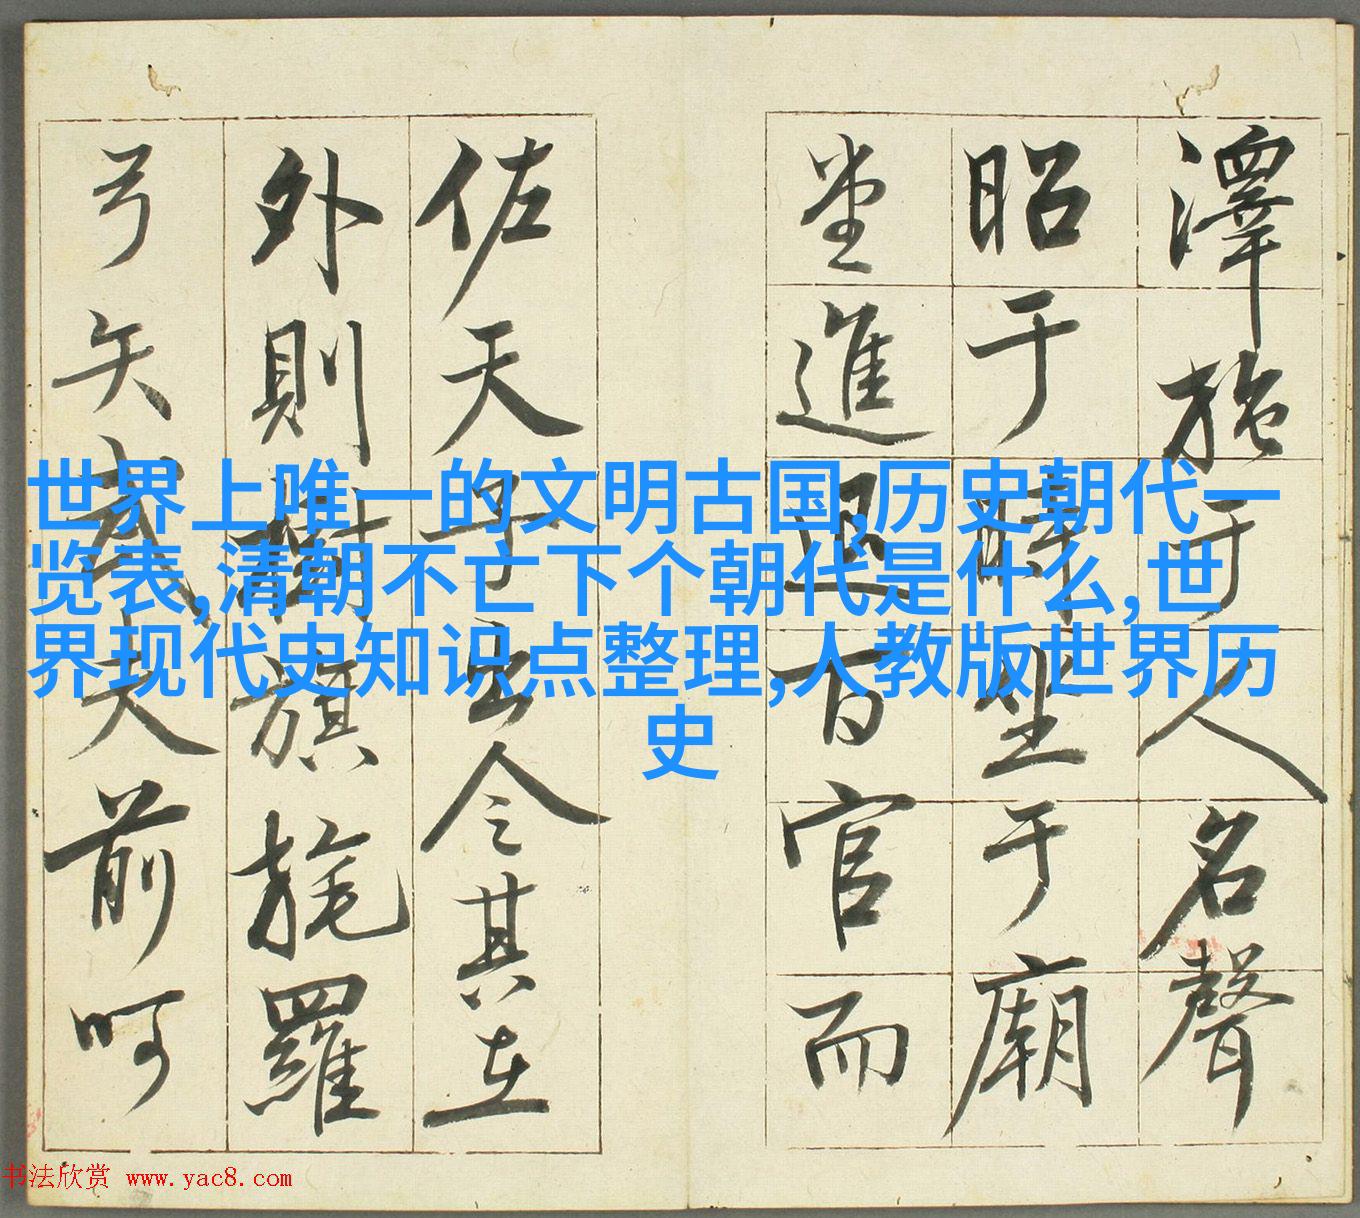 澤施于人名聲
昭于時坐于廟
堂進退百官而
佐天子出令其在
外則樹旗旄羅
弓矢武夫前呵
世界上唯一的文明古国,历史朝代一
览表,清朝不亡下个朝代是什么,世
界现代史知识点整理,人教版世界历
史
书法欣赏 www.yac8.com